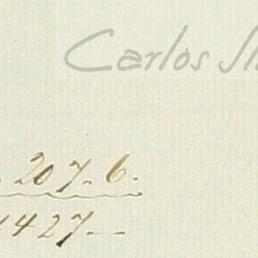 Carlos
207.6.
4427—